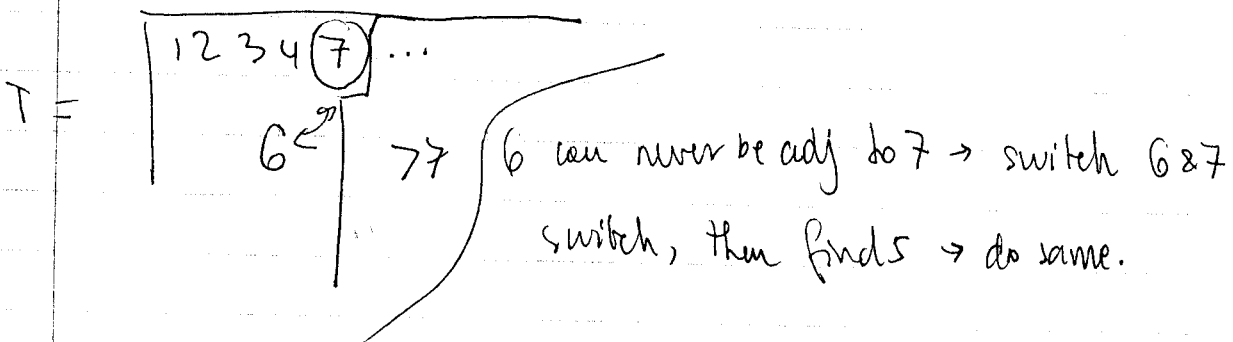 1 2 3 4 7 ...
T =
6 >7 6 can never be adj to 7 → switch 6 & 7
switch, then find 5 → do same.